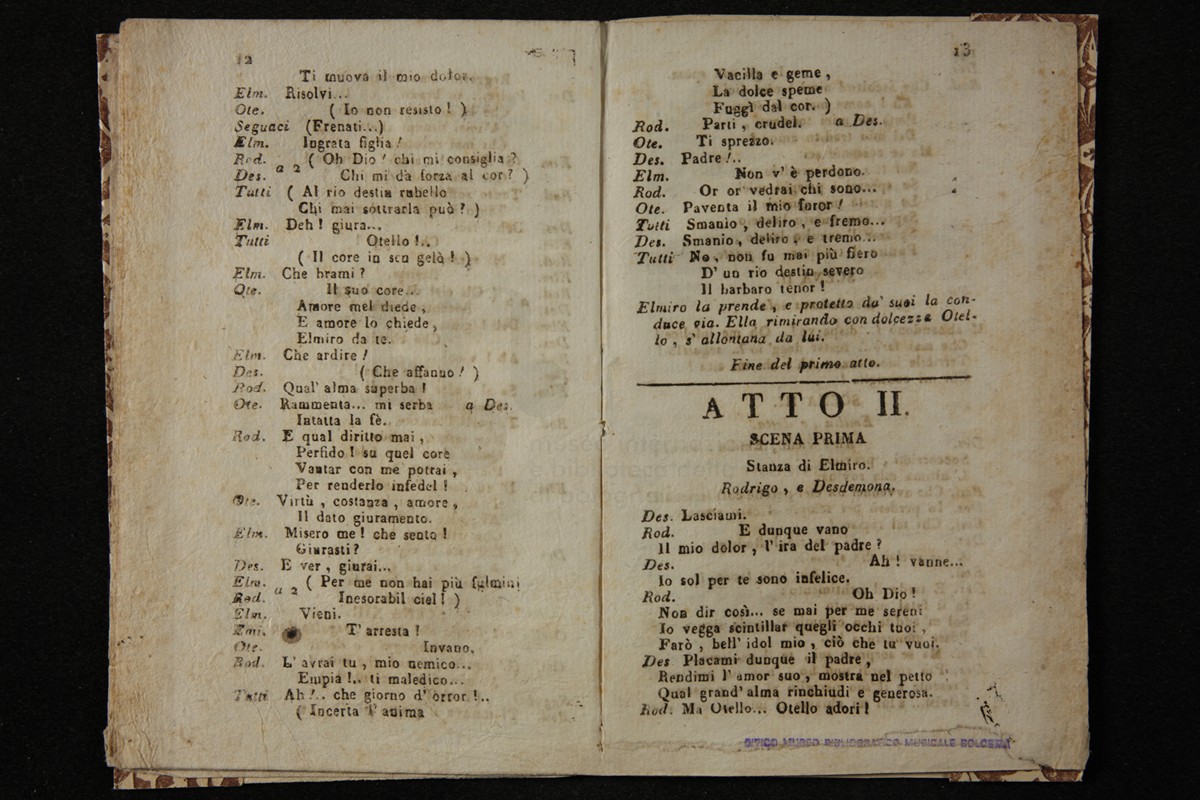 12
Ti muova il mio dolor.
Elm. Risolvi...
Ote. ( Io non resisto ! )
Seguaci (Frenati...)
Elm. Ingrata figlia !
Rod. ( Oh Dio ! chi mi consiglia ?
a 2
Des. Chi mi dà forza al cor ? )
Tutti ( Al rio destin rubello
Chi mai sottrarla può ? )
Elm. Deh ! giura...
Tutti Otello !..
( Il core in sen gelò ! )
Elm. Che brami ?
Ote. Il suo core...
Amore mel diede ,
E amore lo chiede ,
Elmiro da te.
Elm. Che ardire !
Des. ( Che affanno ! )
Rod. Qual' alma superba !
Ote. Rammenta... mi serba a Des.
Intatta la fè.
Rod. E qual diritto mai ,
Perfido ! su quel core
Vantar con me potrai ,
Per renderlo infedel !
Ote. Virtù , costanza , amore ,
Il dato giuramento.
Elm. Misero me ! che sento !
Giurasti ?
Des. E ver , giurai...
Elm. ( Per me non hai più fulmini
a 2
Rod. Inesorabil ciel ! )
Elm. Vieni.
T' arresta !
Ote. Invano.
Rod. L' avrai tu , mio nemico...
Empia !.. ti maledico...
Tutti Ah !.. che giorno d' orror !..
( Incerta l' anima
13
Vacilla e geme ,
La dolce speme
Fuggì dal cor. )
Rod. Parti , crudel. a Des.
Ote. Ti sprezzo.
Des. Padre !..
Elm. Non v' è perdono.
Rod. Or or vedrai chi sono...
Ote. Paventa il mio furor !
Tutti Smanio , deliro , e fremo...
Des. Smanio , deliro , e tremo...
Tutti No , non fu mai più fiero
D' un rio destin severo
Il barbaro tenor !
Elmiro la prende , e protetto da' suoi la con-
duce via. Ella rimirando con dolcezza Otel-
lo , s' allontana da lui.
Fine del primo atto.
ATTO II.
SCENA PRIMA
Stanza di Elmiro.
Rodrigo , e Desdemona.
Des. Lasciami.
Rod. E dunque vano
Il mio dolor , l' ira del padre ?
Des. Ah ! vanne...
Io sol per te sono infelice.
Rod. Oh Dio !
Non dir così... se mai per me sereni
Io vegga scintillar quegli occhi tuoi ,
Farò , bell' idol mio , ciò che tu vuoi.
Des Placami dunque il padre ,
Rendimi l' amor suo , mostra nel petto
Qual grand' alma rinchiudi e generosa.
Rod. Ma Otello... Otello adori !
CIVICO MUSEO BIBLIOGRAFICO MUSICALE BOLOGNA